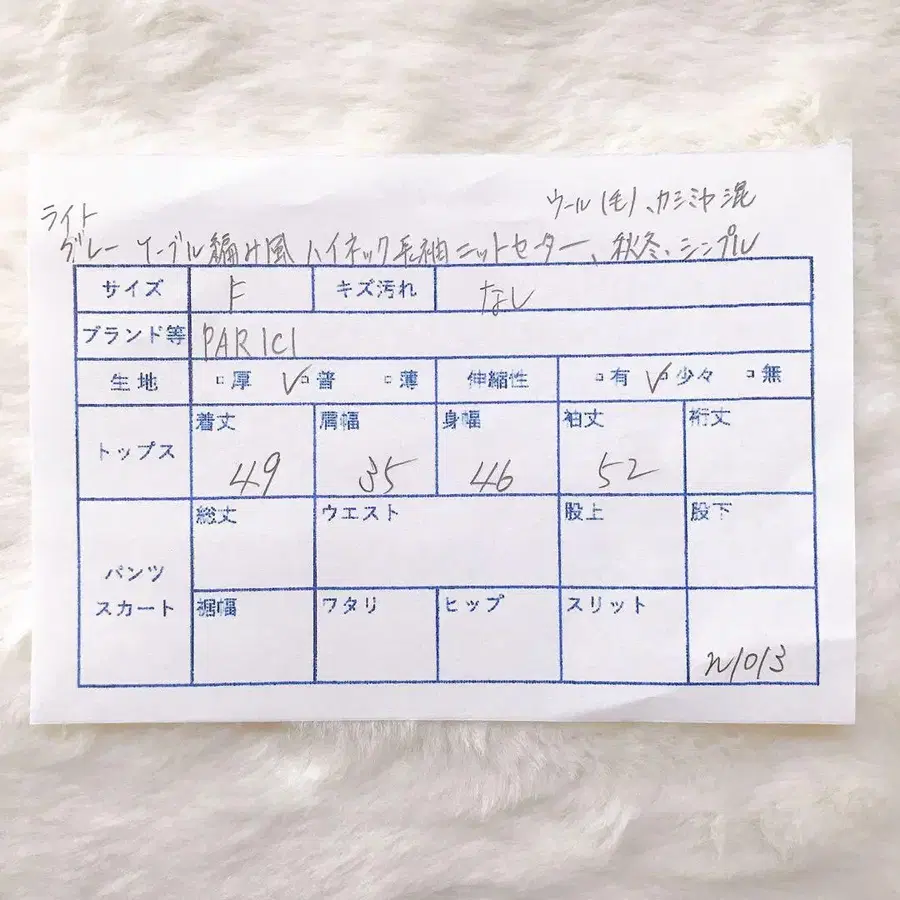 ウール(毛)、カシミヤ混
ライト
グレー ケーブル編み風 ハイネック毛袖ニットセーター、秋冬、シンプル
サイズ F キズ汚れ なし
ブランド等 PARICI
生地 厚 ✓普 薄 伸縮性 有 ✓少々 無
トップス 着丈 49 肩幅 35 身幅 46 袖丈 52 裄丈
パンツ
スカート
総丈 ウエスト 股上 股下
裾幅 ワタリ ヒップ スリット
N1013